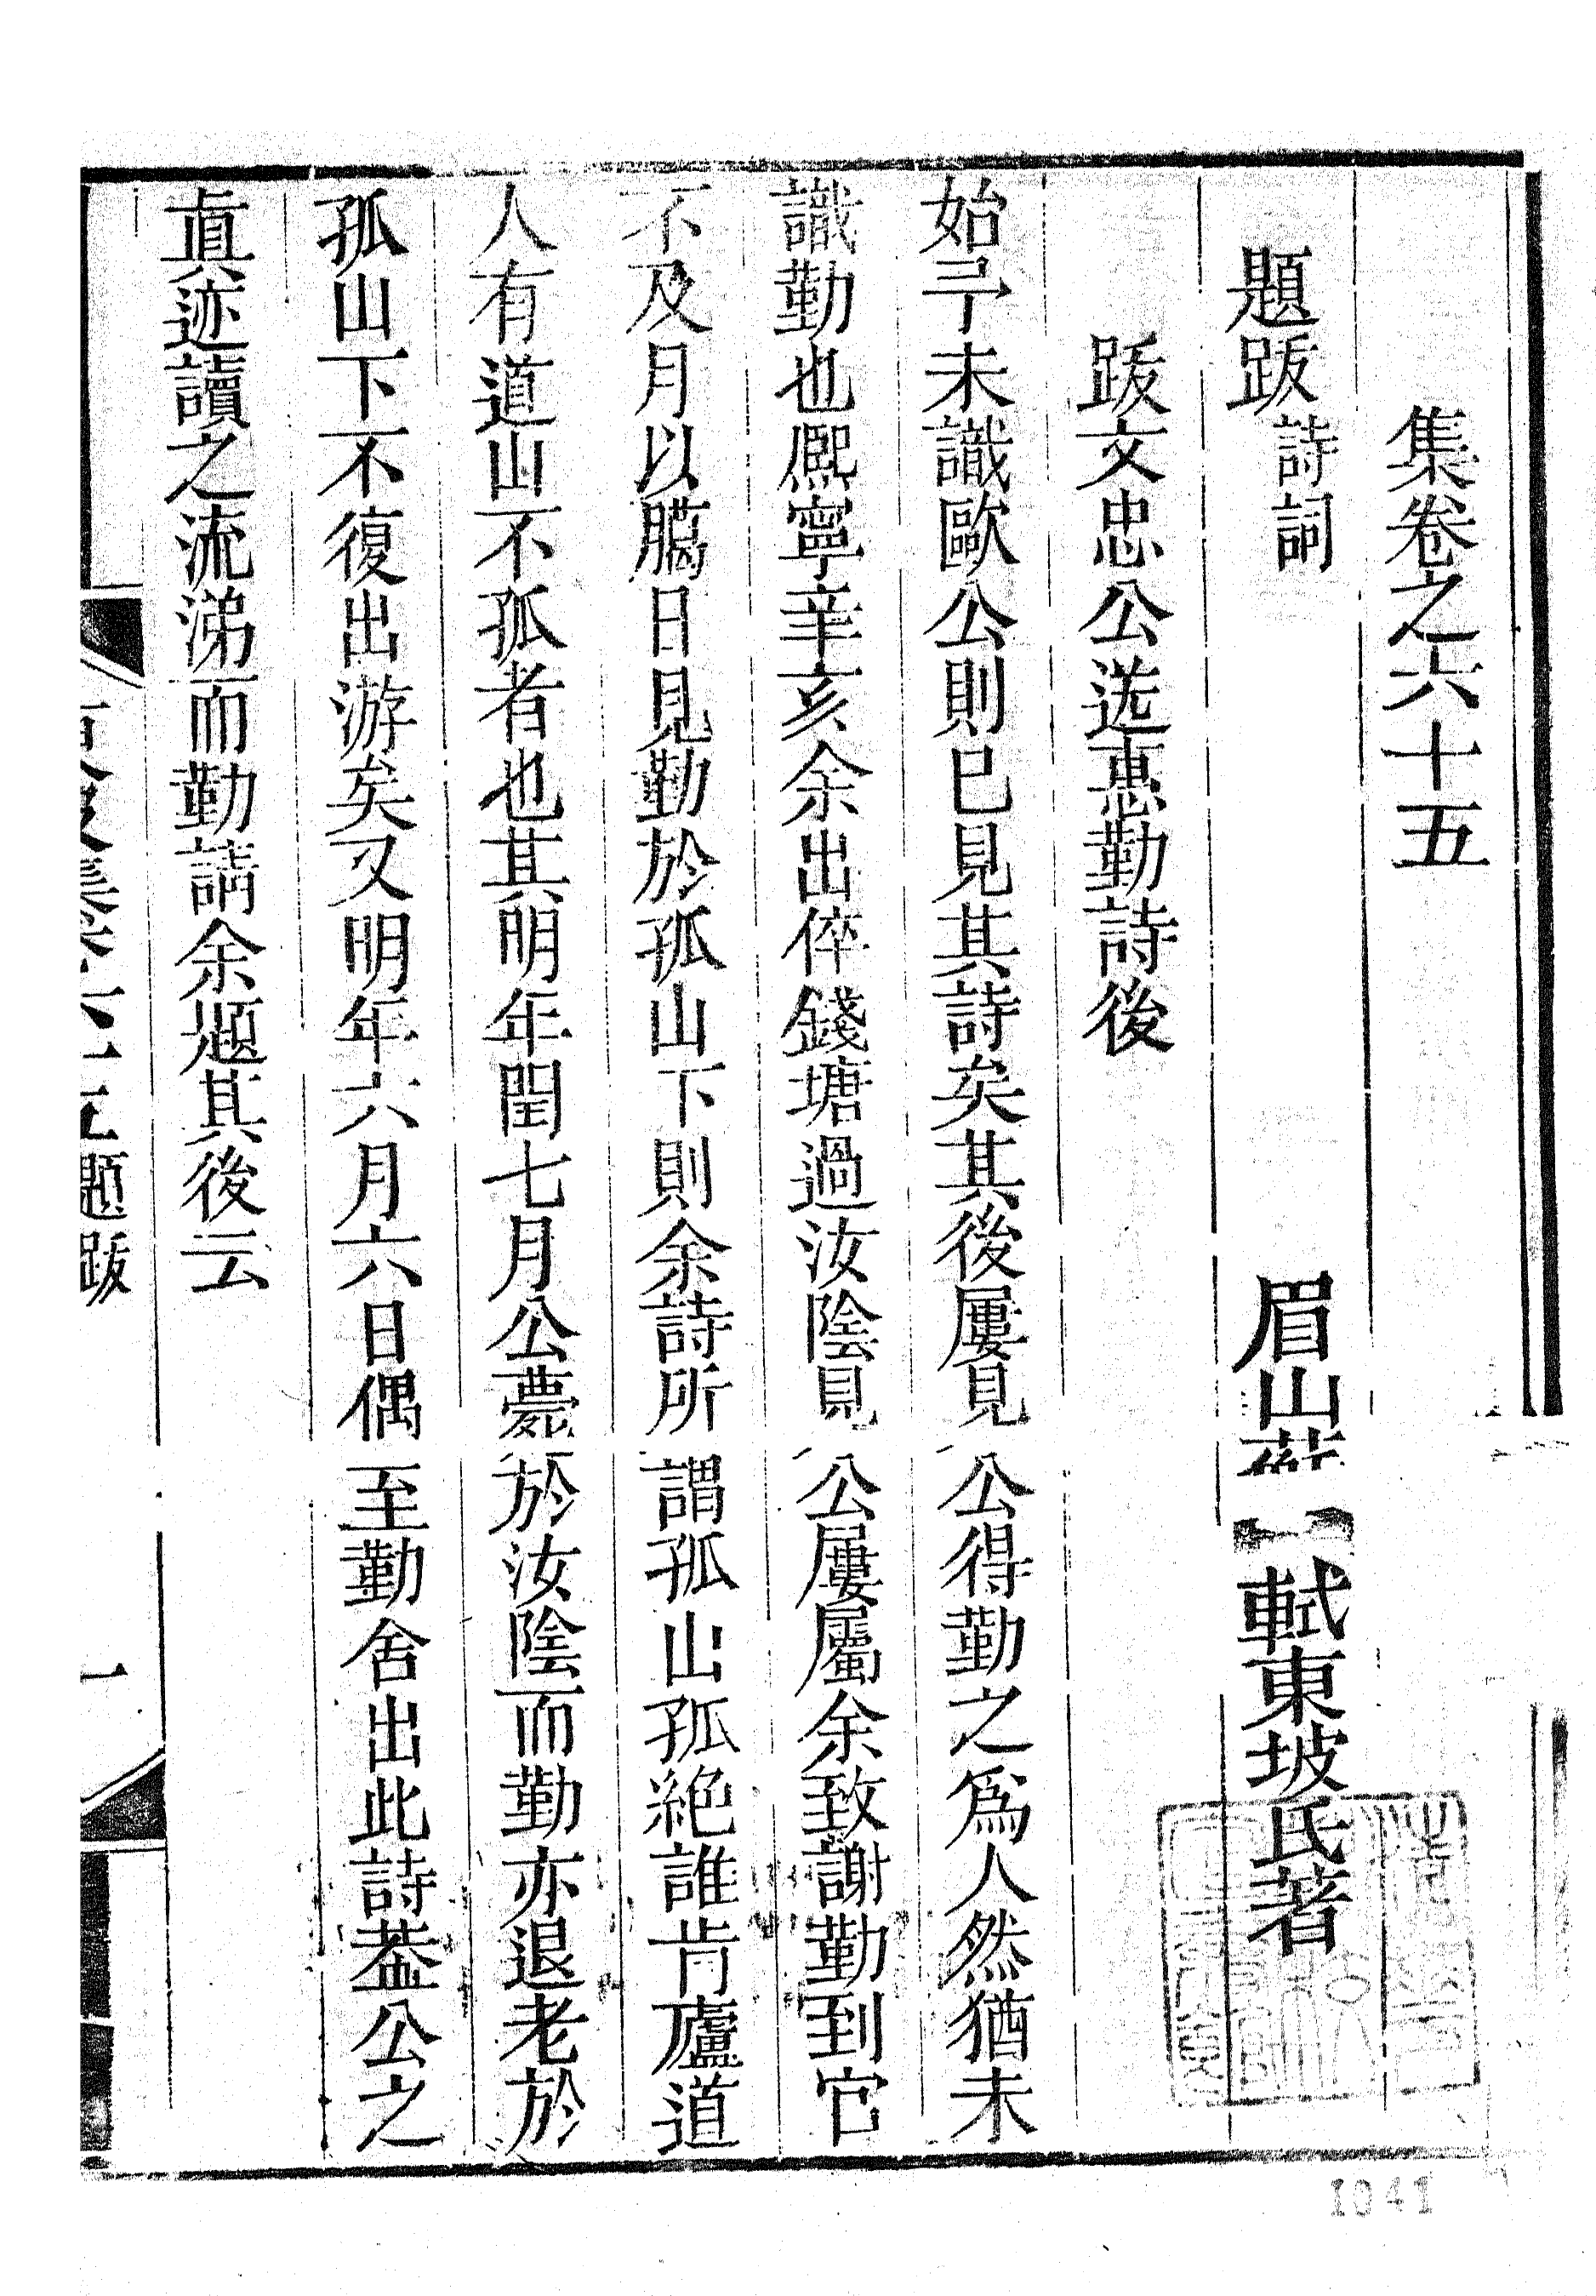 集卷之六十五
題跋詩詞
眉山蘇軾東坡氏著
跋文忠公送惠勤詩後
始予未識歐公則已見其詩矣其後屢見公得勤之爲人然猶未
識勤也熈寧辛亥余出倅錢塘過汝陰見公屢屬余致謝勤到官
不及月以臈日見勤於孤山下則余詩所謂孤山孤絶誰肯廬道
人有道山不孤者也其明年閏七月公薨於汝陰而勤亦退老於
孤山下不復出游矣又明年六月六日偶至勤舍出此詩葢公之
真迹讀之流涕而勤請余題其後云
題跋
一
1041